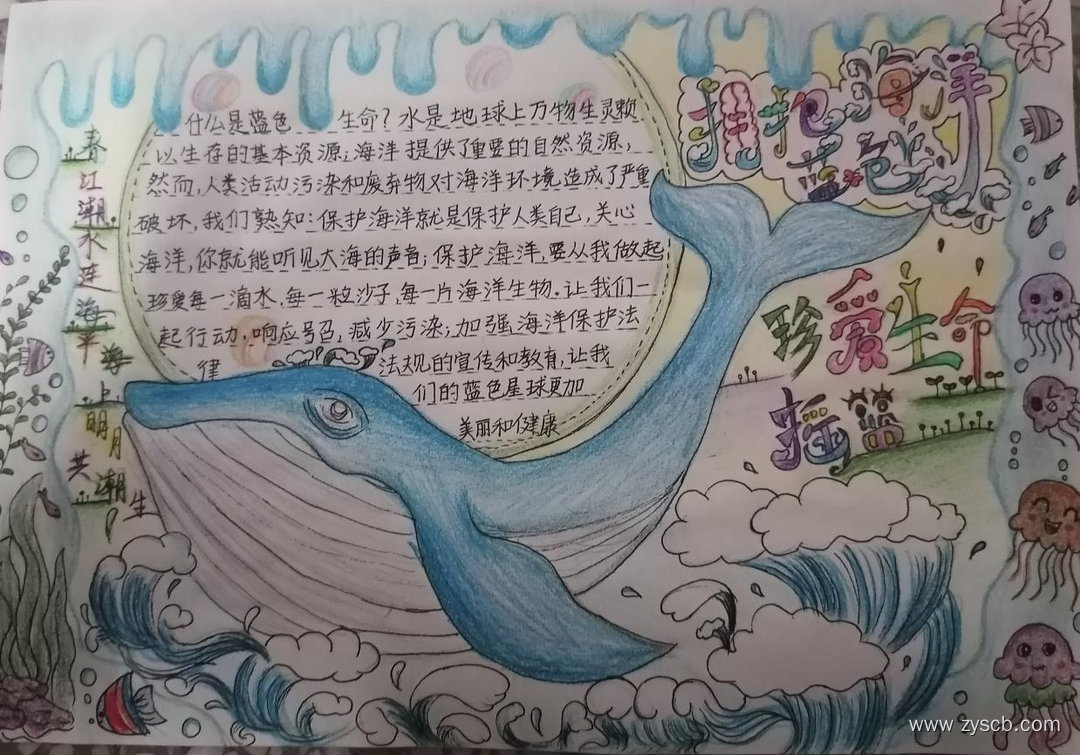 拥抱海洋
蓝色
珍爱生命
摇篮
春江潮水连海平
海上明月共潮生
什么是蓝色 生命？水是地球上万物生灵赖
以生存的基本资源；海洋提供了重要的自然资源，
然而，人类活动污染和废弃物对海洋环境造成了严重
破坏，我们熟知：保护海洋就是保护人类自己，关心
海洋，你就能听见大海的声音；保护海洋，要从我做起
珍爱每一滴水，每一粒沙子，每一片海洋生物。让我们一
起行动，响应号召，减少污染，加强海洋保护法
律 法规的宣传和教育，让我
们的蓝色星球更加
美丽和健康
www.zyscb.com